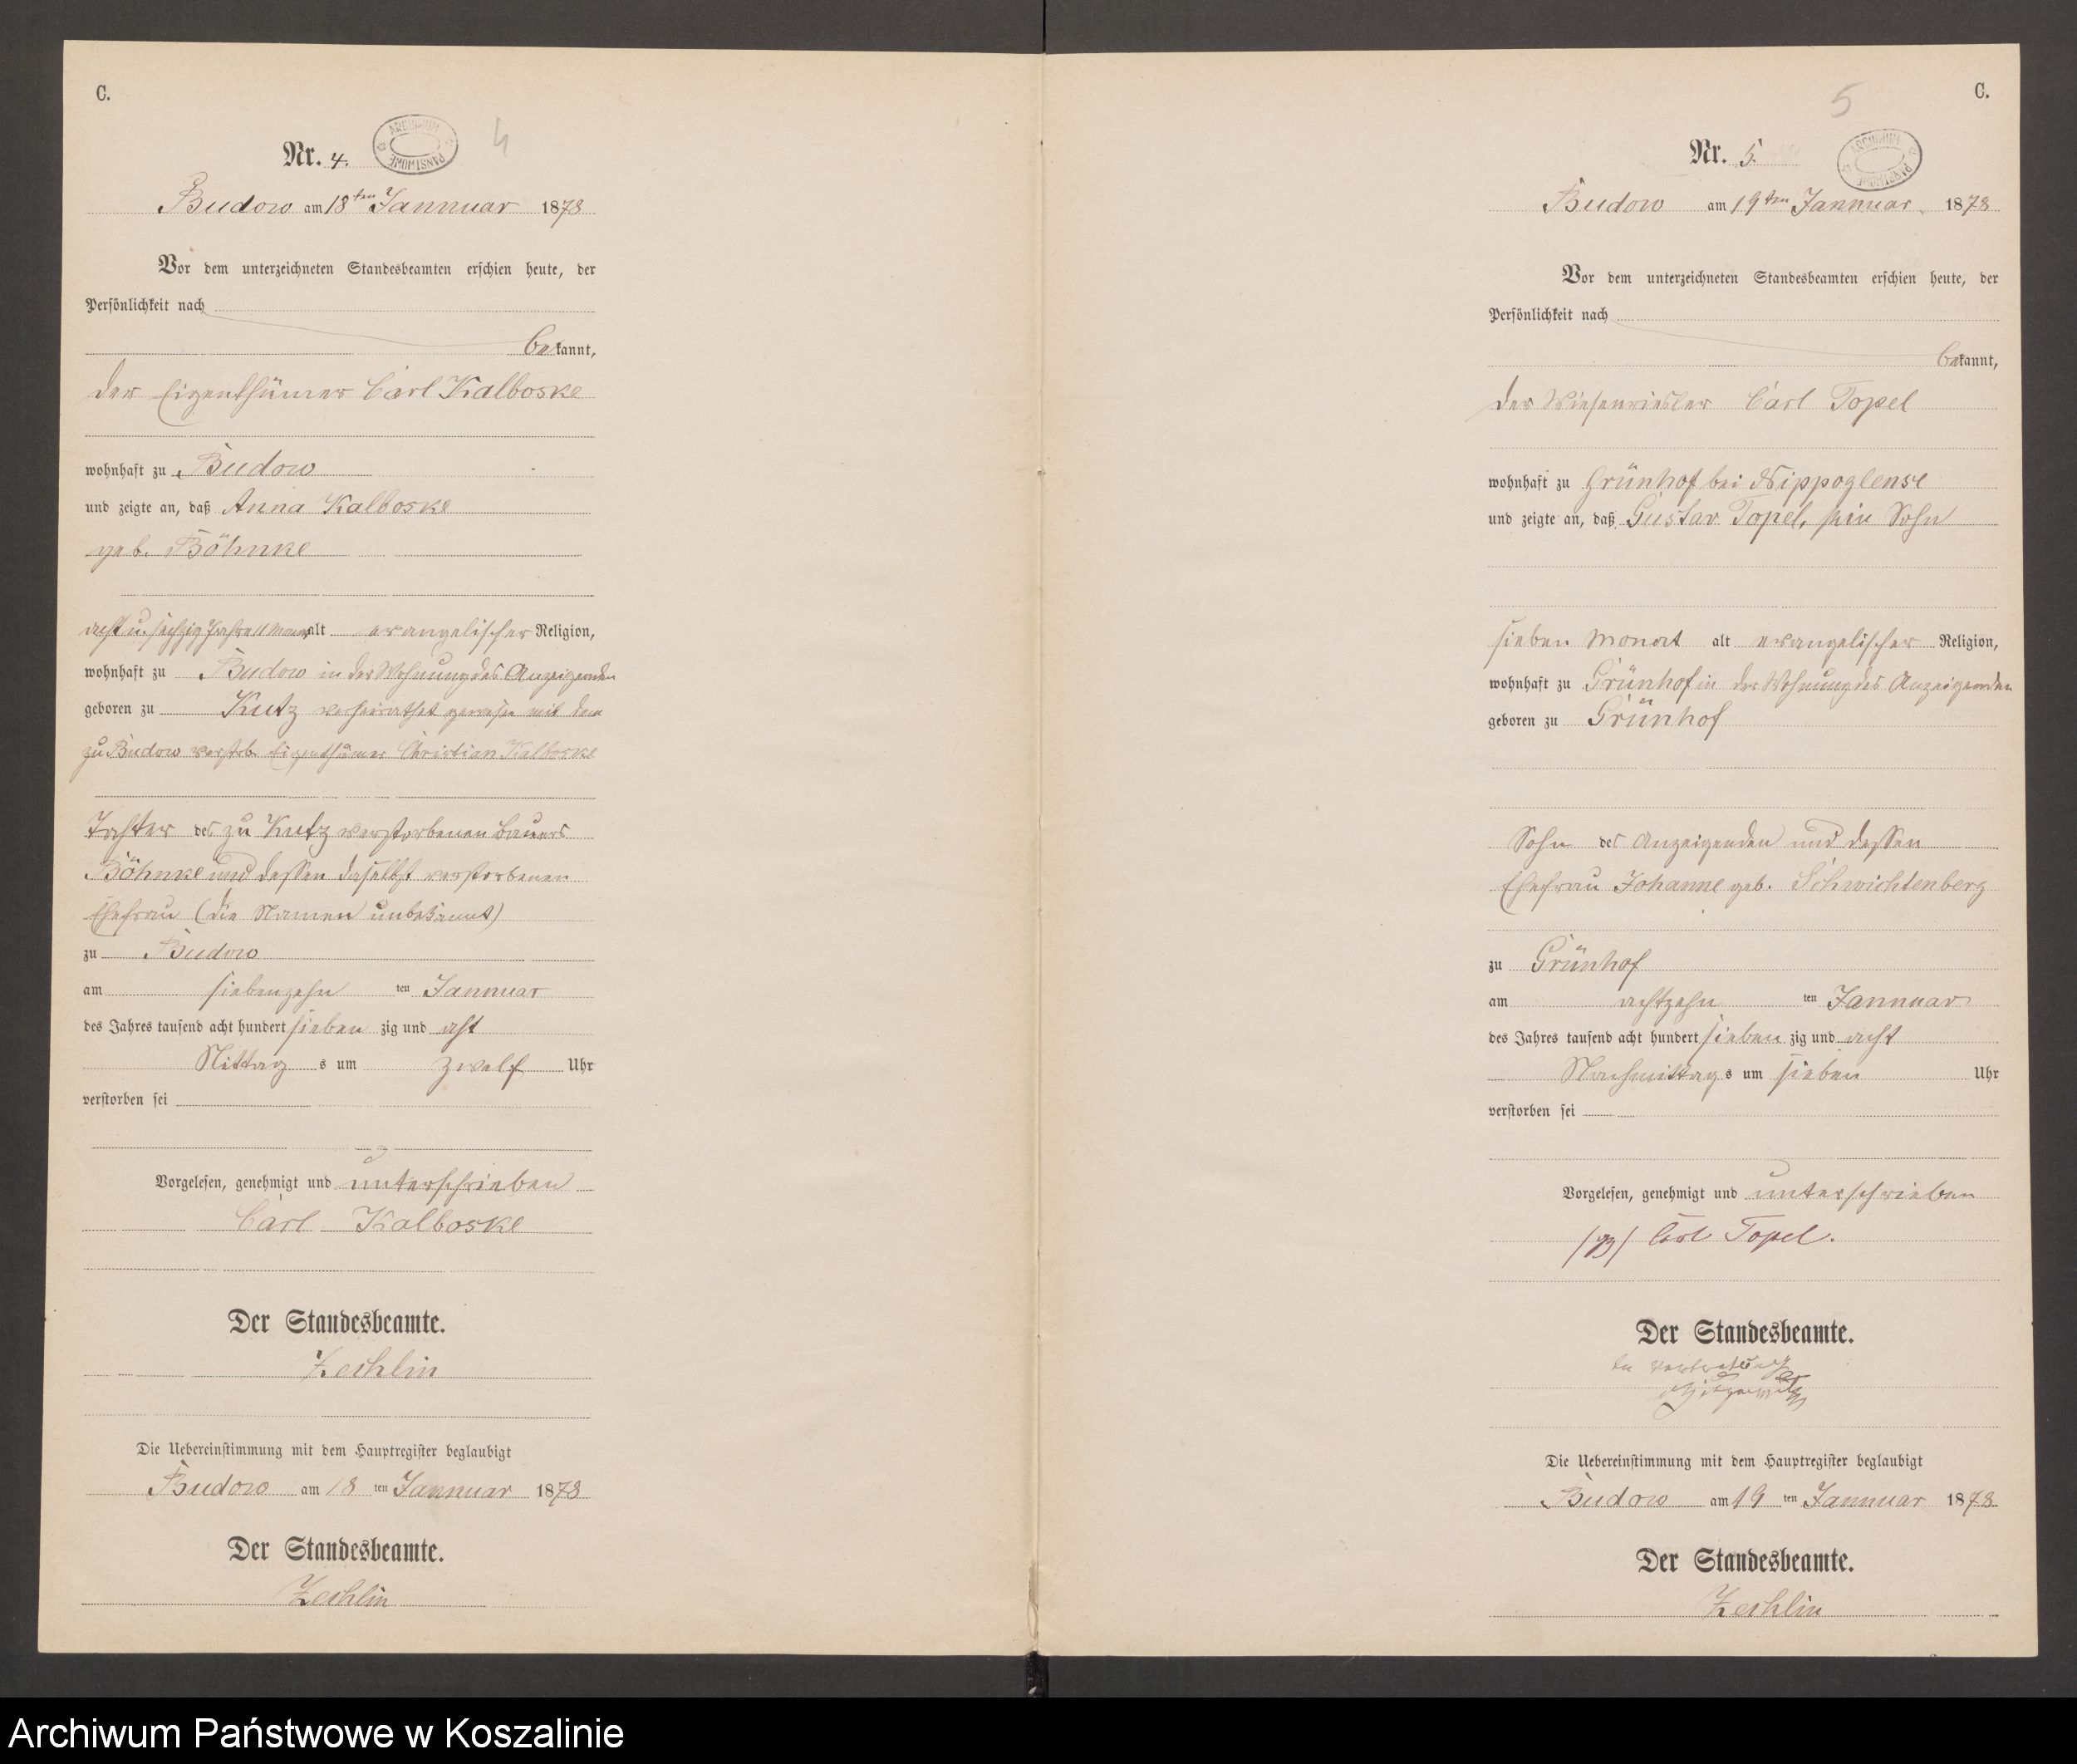 C.
4
Nr. 4.
ARCHIWUM PAŃSTWOWE
Budow am 18ten Januar 1878
Vor dem unterzeichneten Standesbeamten erschien heute, der
Persönlichkeit nach
bekannt,
der Eigenthümer Carl Kalboske
wohnhaft zu Budow
und zeigte an, daß Anna Kalboske
geb. Böhnke
acht u. sechzig Jahre 11 Monat alt evangelischer Religion,
wohnhaft zu Budow in der Wohnung des Anzeigenden
geboren zu Kutz verheirathet gewesen mit dem
zu Budow verstorb. Eigenthümer Christian Kalboske
Tochter des zu Kutz verstorbenen Bauers
Böhnke und dessen daselbst verstorbenen
Ehefrau (die Namen unbekannt)
zu Budow
am siebenzehn ten Januar
des Jahres tausend acht hundert sieben zig und acht
Mittag s um zwölf Uhr
verstorben sei
Vorgelesen, genehmigt und unterschrieben
Carl Kalboske
Der Standesbeamte.
Zechlin
Die Uebereinstimmung mit dem Hauptregister beglaubigt
Budow am 18 ten Januar 1878
Der Standesbeamte.
Zechlin
C.
5
Nr. 5.
ARCHIWUM PAŃSTWOWE
Budow am 19ten Januar 1878
Vor dem unterzeichneten Standesbeamten erschien heute, der
Persönlichkeit nach
bekannt,
der Wiesenriesler Carl Topel
wohnhaft zu Grünhof bei Nippoglense
und zeigte an, daß Gustav Topel, sein Sohn
sieben Monat alt evangelischer Religion,
wohnhaft zu Grünhof in der Wohnung des Anzeigenden
geboren zu Grünhof
Sohn des Anzeigenden und dessen
Ehefrau Johanne geb. Schwichtenberg
zu Grünhof
am achtzehn ten Januar
des Jahres tausend acht hundert sieben zig und acht
Nachmittag s um sieben Uhr
verstorben sei
Vorgelesen, genehmigt und unterschrieben
Carl Topel.
Der Standesbeamte.
In Vertretung
Die Uebereinstimmung mit dem Hauptregister beglaubigt
Budow am 19 ten Januar 1878
Der Standesbeamte.
Zechlin
Archiwum Państwowe w Koszalinie